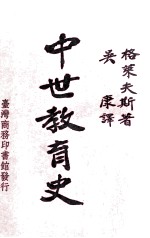 格萊夫斯著
吳康譯
中世教育史
臺灣商務印書館發行